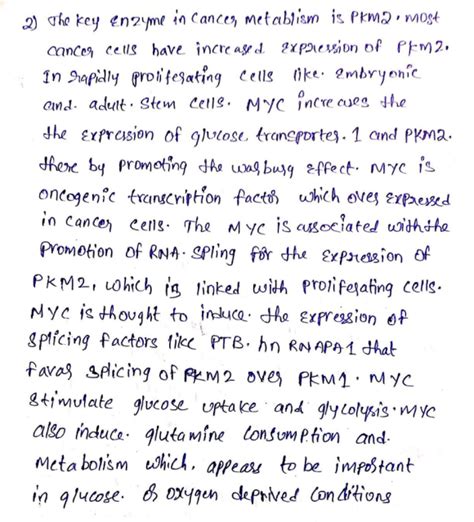 2) The key enzyme in Cancer metablism is PKM2. most
cancer cells have increased expression of PKM2.
In rapidly proliferating cells like. embryonic
and. adult. Stem cells. MYC increases the
the expression of glucose transporter. 1 and PKM2.
there by promoting the warburg effect. MYC is
oncogenic transcription factor which over expressed
in cancer cells. The MYC is associated with the
promotion of RNA. Spling for the expression of
PKM2, which is linked with proliferating cells.
MYC is thought to induce. the expression of
splicing factors like PTB. hn RNAPA1 that
favar splicing of PKM2 over PKM1. MYC
stimulate glucose uptake and glycolysis. MYC
also induce. glutamine consumption and.
Metabolism which. appears to be important
in glucose. or oxygen deprived conditions